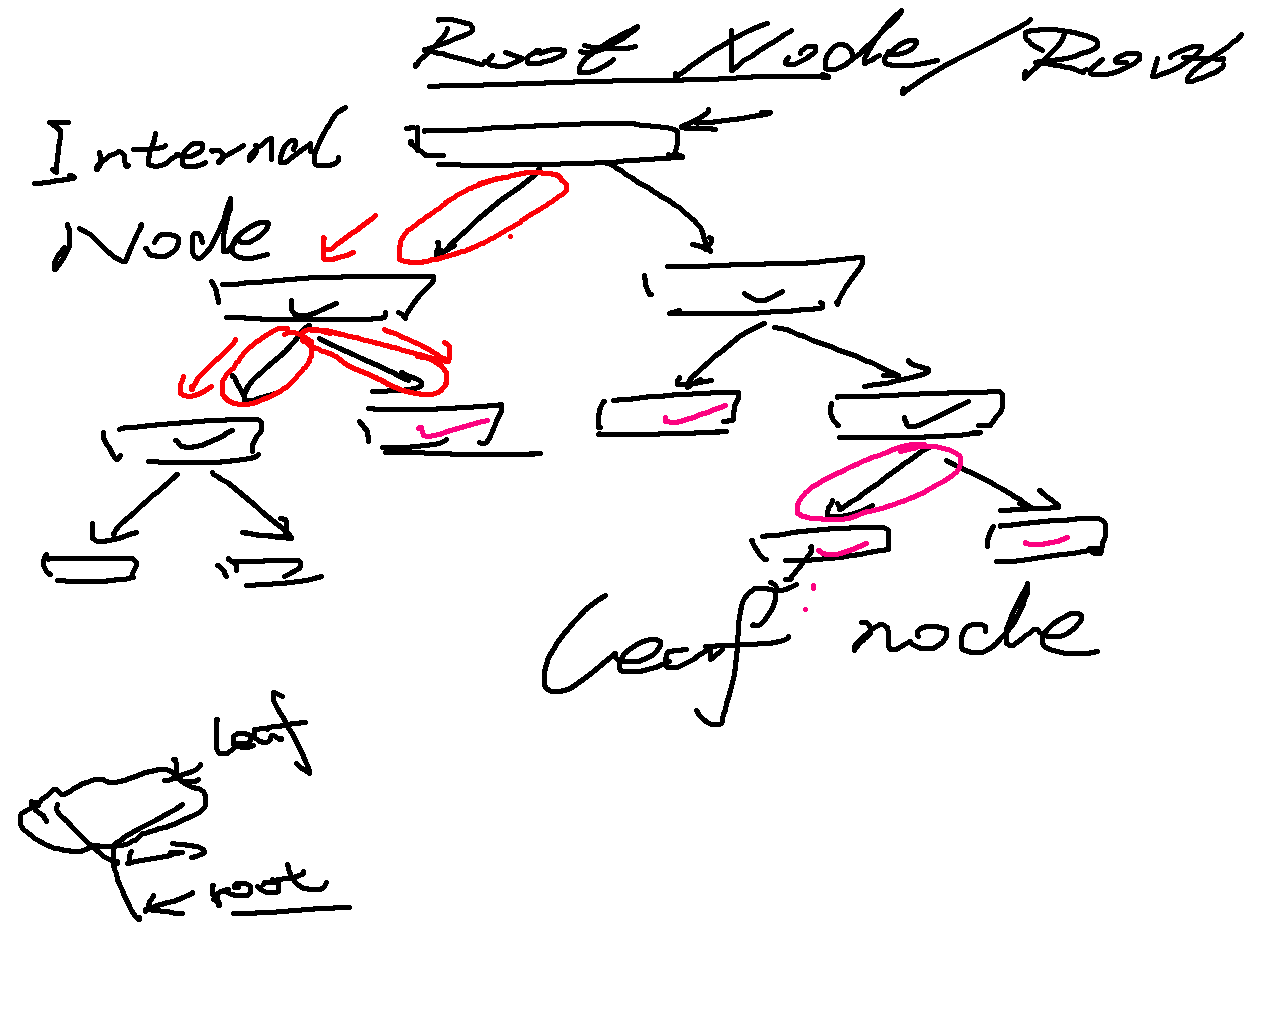 Root Node/Root
Internal
Node
Leaf node
leaf
root